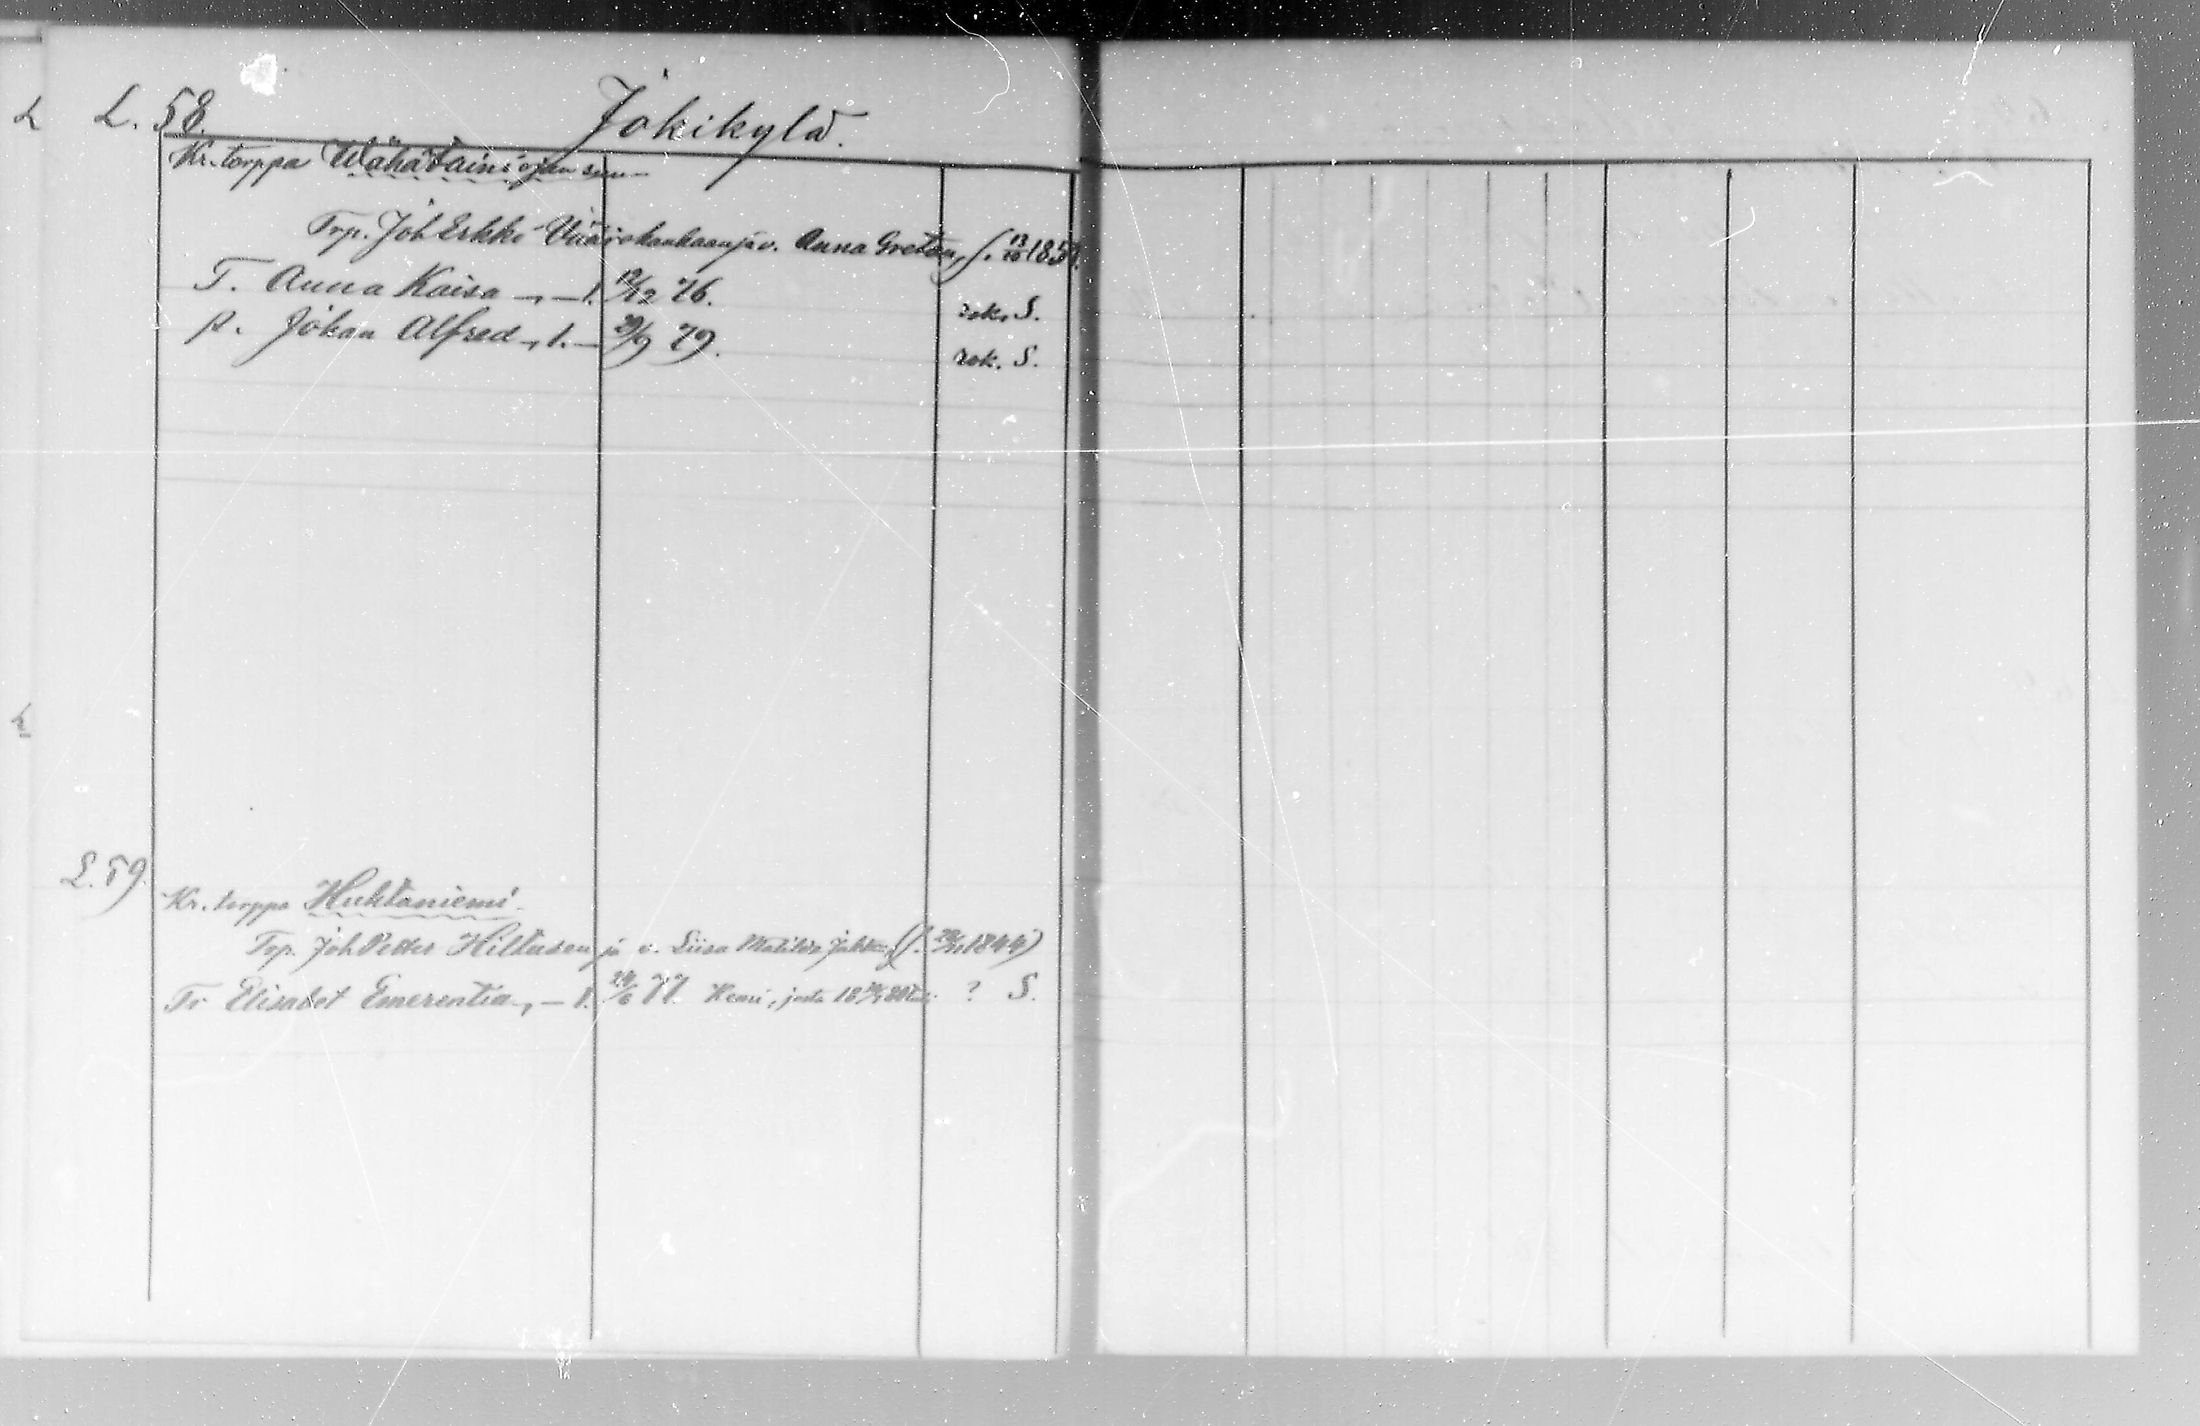 L. 58. Jokikylä.
Kr. torppa Wähätainiojan suu
Trp. Joh Erkki Viiriskankaan ja v. Anna Gretan, s. 13/10 185
T. Anna Kaisa —,— s. 12/12 76. rok. S.
p. Johan Alfred —,— s. 29/9 79. rok. S.
L. 59.
Kr. torppa Huhtaniemi
Trp. Joh Petter Hiltusen ja v. Liisa Matilda (s. 1844)
Tr Elisabet Emerentia —,— s. 24/6 77. Kemi, ? S.